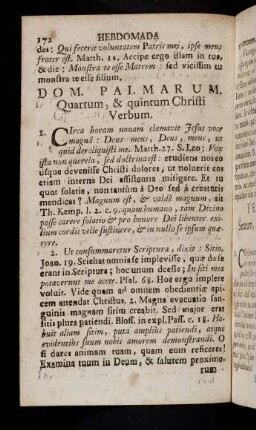 172 HEBDOMADA
des: Qui fecerit voluntatem Patris mei, ipse meus
frater est. Matth. 12. Accipe ergo illam in tua,
& dic: Monstra te esse Matrem: sed vicissim tu
monstra te esse filium.
DOM. PALMARUM.
Quartum, & quintum Christi
Verbum.
1. Circa horam nonam clamavit Jesus voce
magnâ: Deus meus, Deus meus, ut
quid dereliquisti me. Matth. 27. S. Leo: Vox
ista non querela, sed doctrina est: erudiens nos eo
usque devenisse Christi dolores, ut noluerit cos
etiam interna Dei assistentia mitigare. Et tu
quot solatia, non tantùm à Deo sed à creaturis
mendicas? Magnum est, & valdè magnum, ait
Th. Kemp. l. 2. c. 9. quàm humano, tam Divino
posse carere solatio & pro honore Dei libenter exi-
lium cordis velle sustinere, & in nullo se ipsum quæ-
rere.
2. Ut consummaretur Scriptura, dixit: Sitio,
Joan. 19. Sciebat omnia se implevisse, quæ de se
erant in Scriptura; hoc unum deesse; In siti mea
potaverunt me aceto. Psal. 68. Hoc ergo implere
voluit. Vide quam ad omnem obedientiæ api-
cem attendat Christus. 2. Magna evacuatio san-
guinis magnam sitim creabit. Sed major erat
sitis plura patiendi. Bloss. in expl. Pass. c. 18. Ha-
buit aliam sitim, puta amplius patiendi, atque
evidentius suum nobis amorem demonstrandi. O
si dares animam tuam, quam eum reficeres!
Examina tuam in Deum, & salutem proximo-
rum